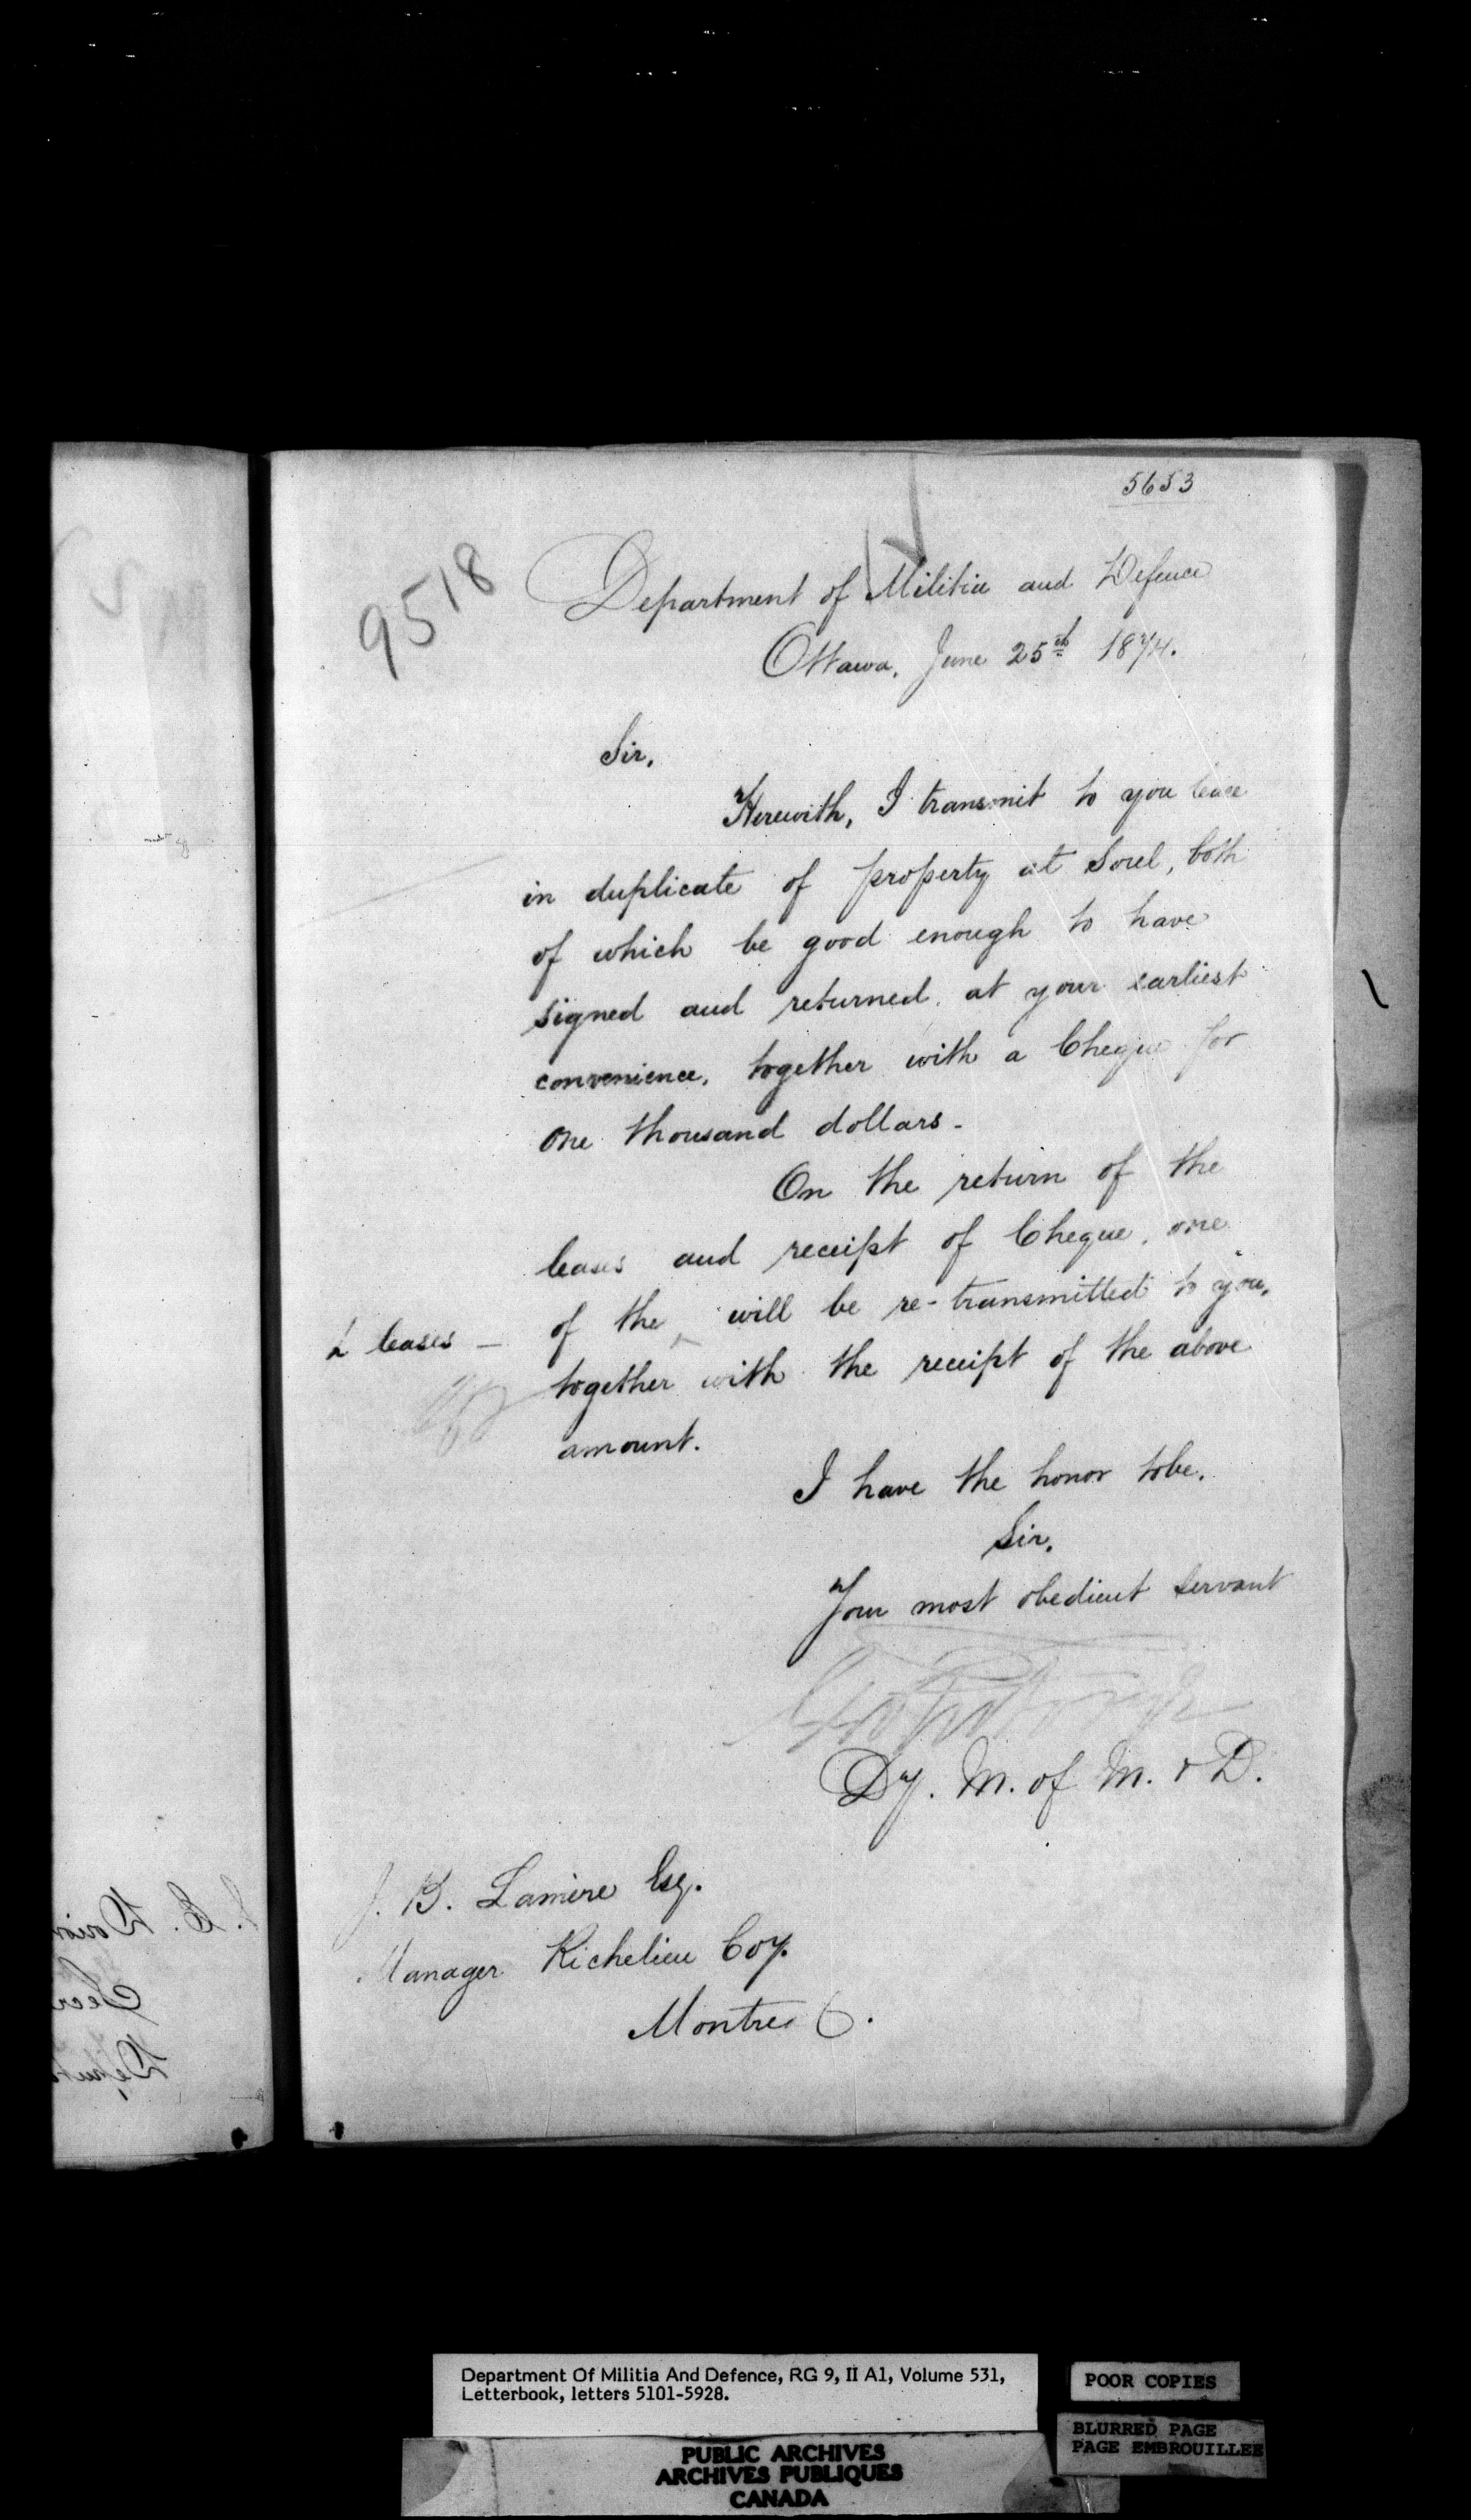 5653
9518
Department of Militia and Defence
Ottawa, June 25th 1874.
Sir,
Herewith, I transmit to you lease
in duplicate of property at Sorel, both
of which be good enough to have
signed and returned, at your earliest
convenience, together with a Cheque for
one thousand dollars -
On the return of the
leases and receipt of Cheque, one
of the ‸ will be re-transmitted to you,
⊥ leases —
together with the receipt of the above
amount.
I have the honor to be,
Sir,
Your most obedient servant
Dy. M. of M. & D.
J. B. Lamère Esq.
Manager Richelieu Coy.
Montreal.
Department Of Militia And Defence, RG 9, II A1, Volume 531,
Letterbook, letters 5101-5928.
POOR COPIES
BLURRED PAGE
PAGE EMBROUILLEE
PUBLIC ARCHIVES
ARCHIVES PUBLIQUES
CANADA